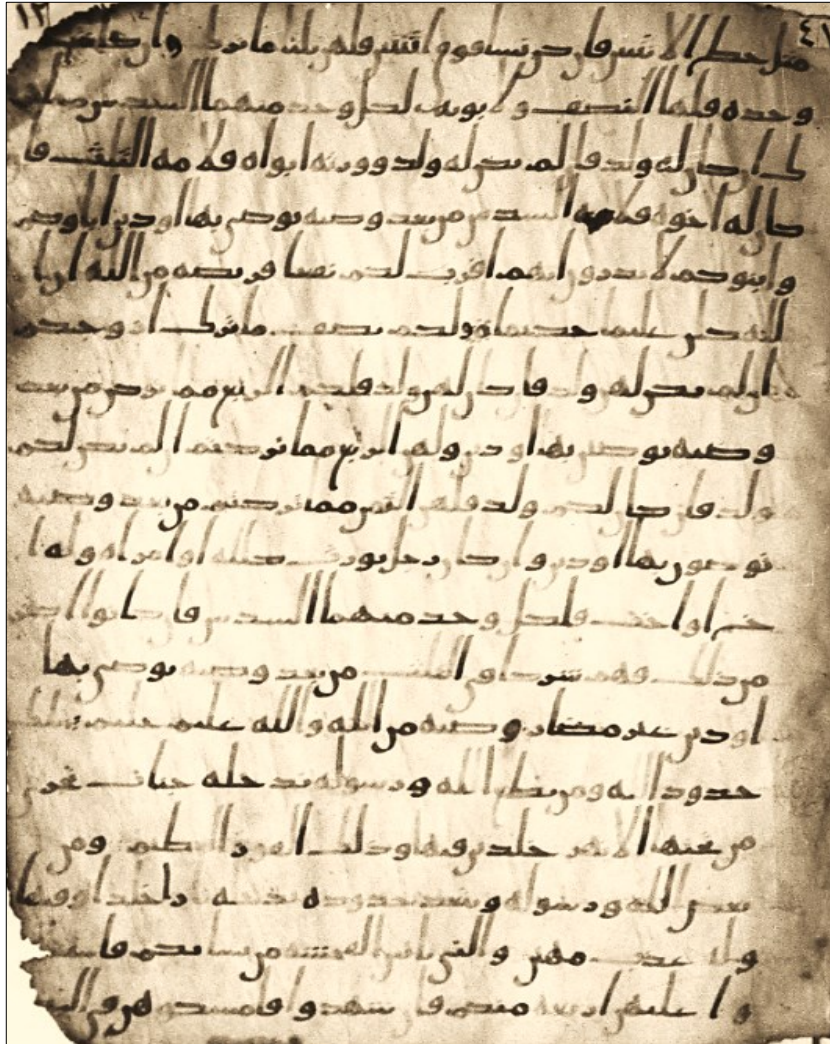 مثل حظ الانثيين فان كن نسا فوق اثنتين فلهن ثلثا ما ترك وان كانت
وحده فلها النصف ولابويه لكل وحد منهما السدس مما تر
ك ان كان له ولد فان لم يكن له ولد وورثه ابواه فلامه الثلث فا
ن كان له اخوه فلامه السدس من بعد وصيه يوصي بها او دين اباوكم
وابنوكم لا تدرون ايهم اقرب لكم نفعا فريضه من الله ان ا
لله كان عليما حكيما ولكم نصف ما ترك ازوجكم
ان لم يكن لهن ولد فان كان لهن ولد فلكم الربع مما تركن من بعد
وصيه يوصين بها او دين ولهن الربع مما تركتم ان لم يكن لكم
ولد فان كان لكم ولد فلهن الثمن مما تركتم من بعد وصيه
توصون بها او دين وان كان رجل يورث كلله او امراه وله ا
خ او اخت فلكل وحد منهما السدس فان كانوا اكثر
من ذلك فهم شركا في الثلث من بعد وصيه يوصي بها
او دين غير مضار وصيه من الله والله عليم حليم تلك
حدود الله ومن يطع الله ورسوله يدخله جنات تجري
من تحتها الانهر خلدين فيها وذلك الفوز العظيم ومن
يعص الله ورسوله ويتعد حدوده يدخله نارا خلدا فيها
وله عذب مهين والتي ياتين الفحشه من نسايكم فاستشهد
وا عليهن اربعه منكم فان شهدوا فامسكوهن في البيو